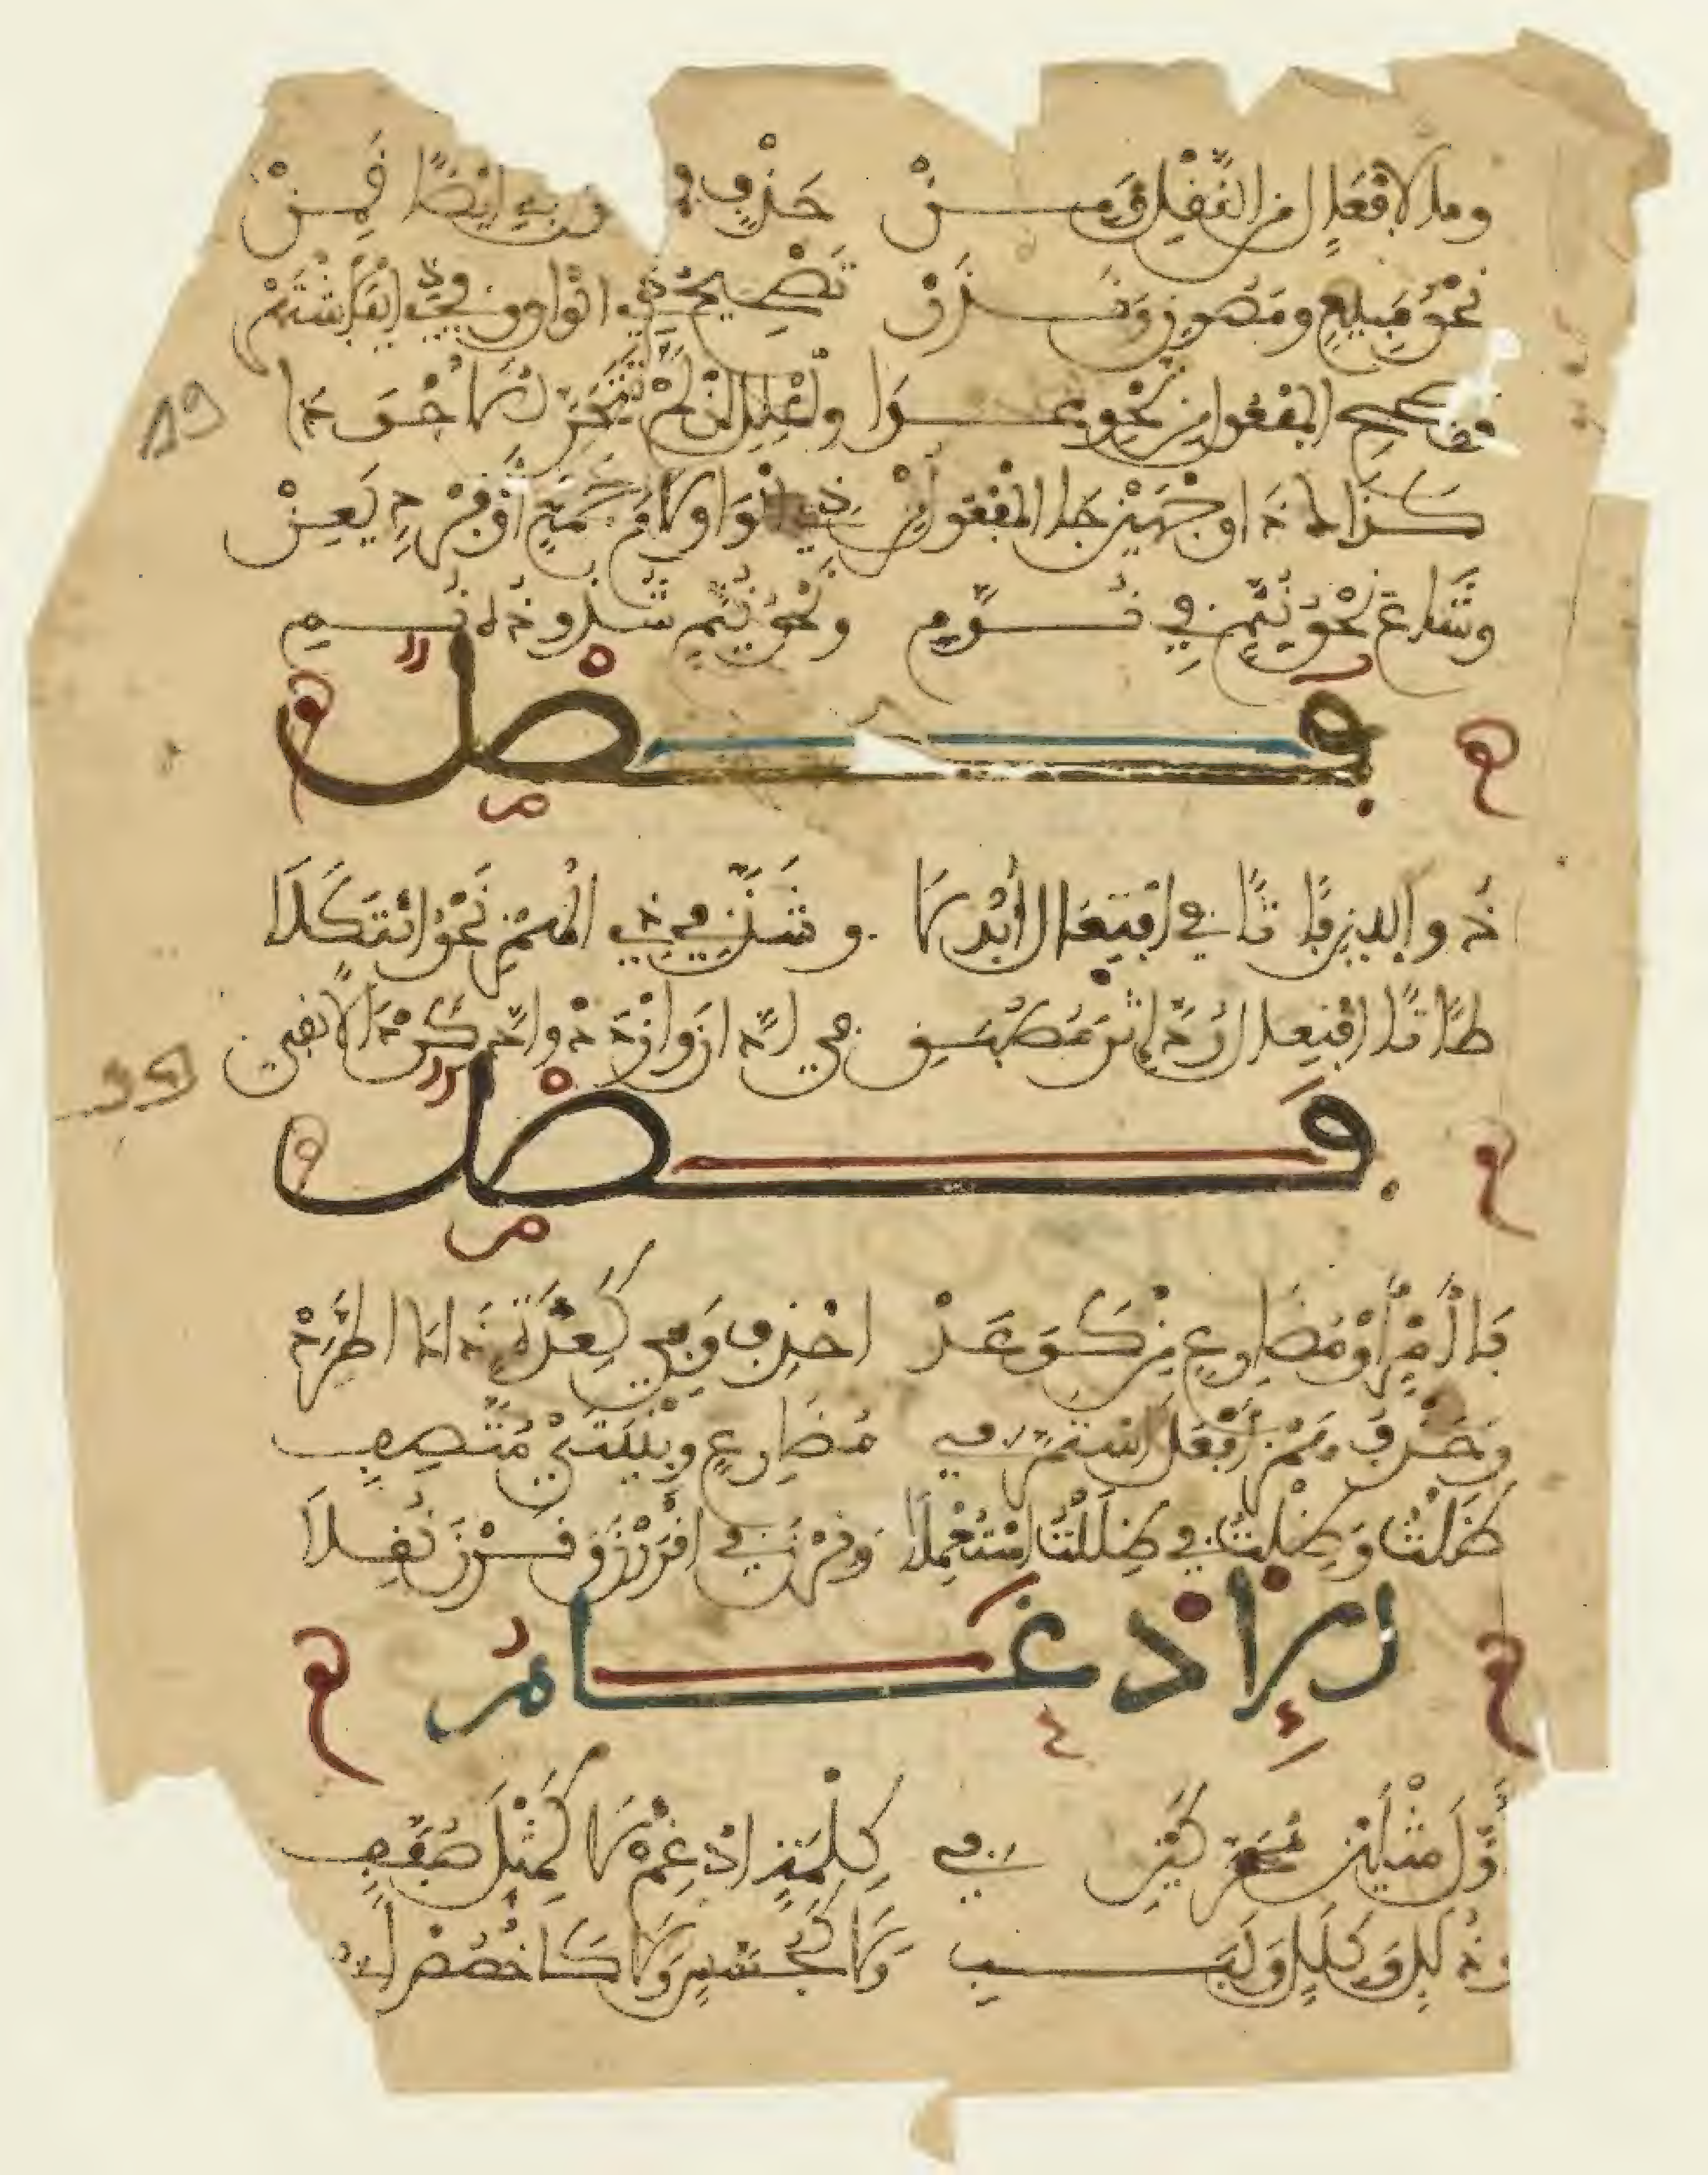 وما لإفعال من النقل ومن حذف فـ ـن به أيضا قمن
نحو مبيع ومصون وندر تصحيح ذي الواو وفي ذي اليا اشتهر
وصحح المفعول من نحو عدا وأعلل إن لم تتحر الأجودا
كذاك ذا وجهين جا الفعول من ذي الواو لام جمع أو فرد يعن
وشاع نحو نيم في نوم ونحو نيام شذوذه نمي
فصل
ذو اللين فا تا في افتعال أبدلا وشذ في ذي الهمز نحو ائتكلا
طا تا افتعال رد إثر مطبق في ادان وازدد وادكر دالا بقي
فصل
فا أمر أو مضارع من كوعد احذف وفي كعدة ذاك اطرد
وحذف همز أفعل استمر في مضارع وبنيتي متصف
ظلت وظلت في ظللت استعملا وقرن في اقررن وقرن نقلا
الإدغام
أول مثلين محركين في كلمة ادغم لا كمثل صفف
وذلل وكلل ولبب ولا كجسس ولا كاخصص أبي
19
39